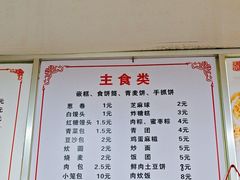 主食类
嵌糕、食饼筒、青麦饼、手抓饼
葱卷 1元 芝麻球 2元
白馒头 1元 炸糖糕 3元
红糖馒头 1.5元 肉粽、蜜枣粽 4元
青菜包 1.5元 青团 4元
豆沙包 2元 鸡蛋麻糍 5元
炊圆 2元 炒面 5元
烧麦 2元 饭团 5元
肉包 2元 鲜肉土豆饼 3元
小笼包 10元 肉炊饭 8元